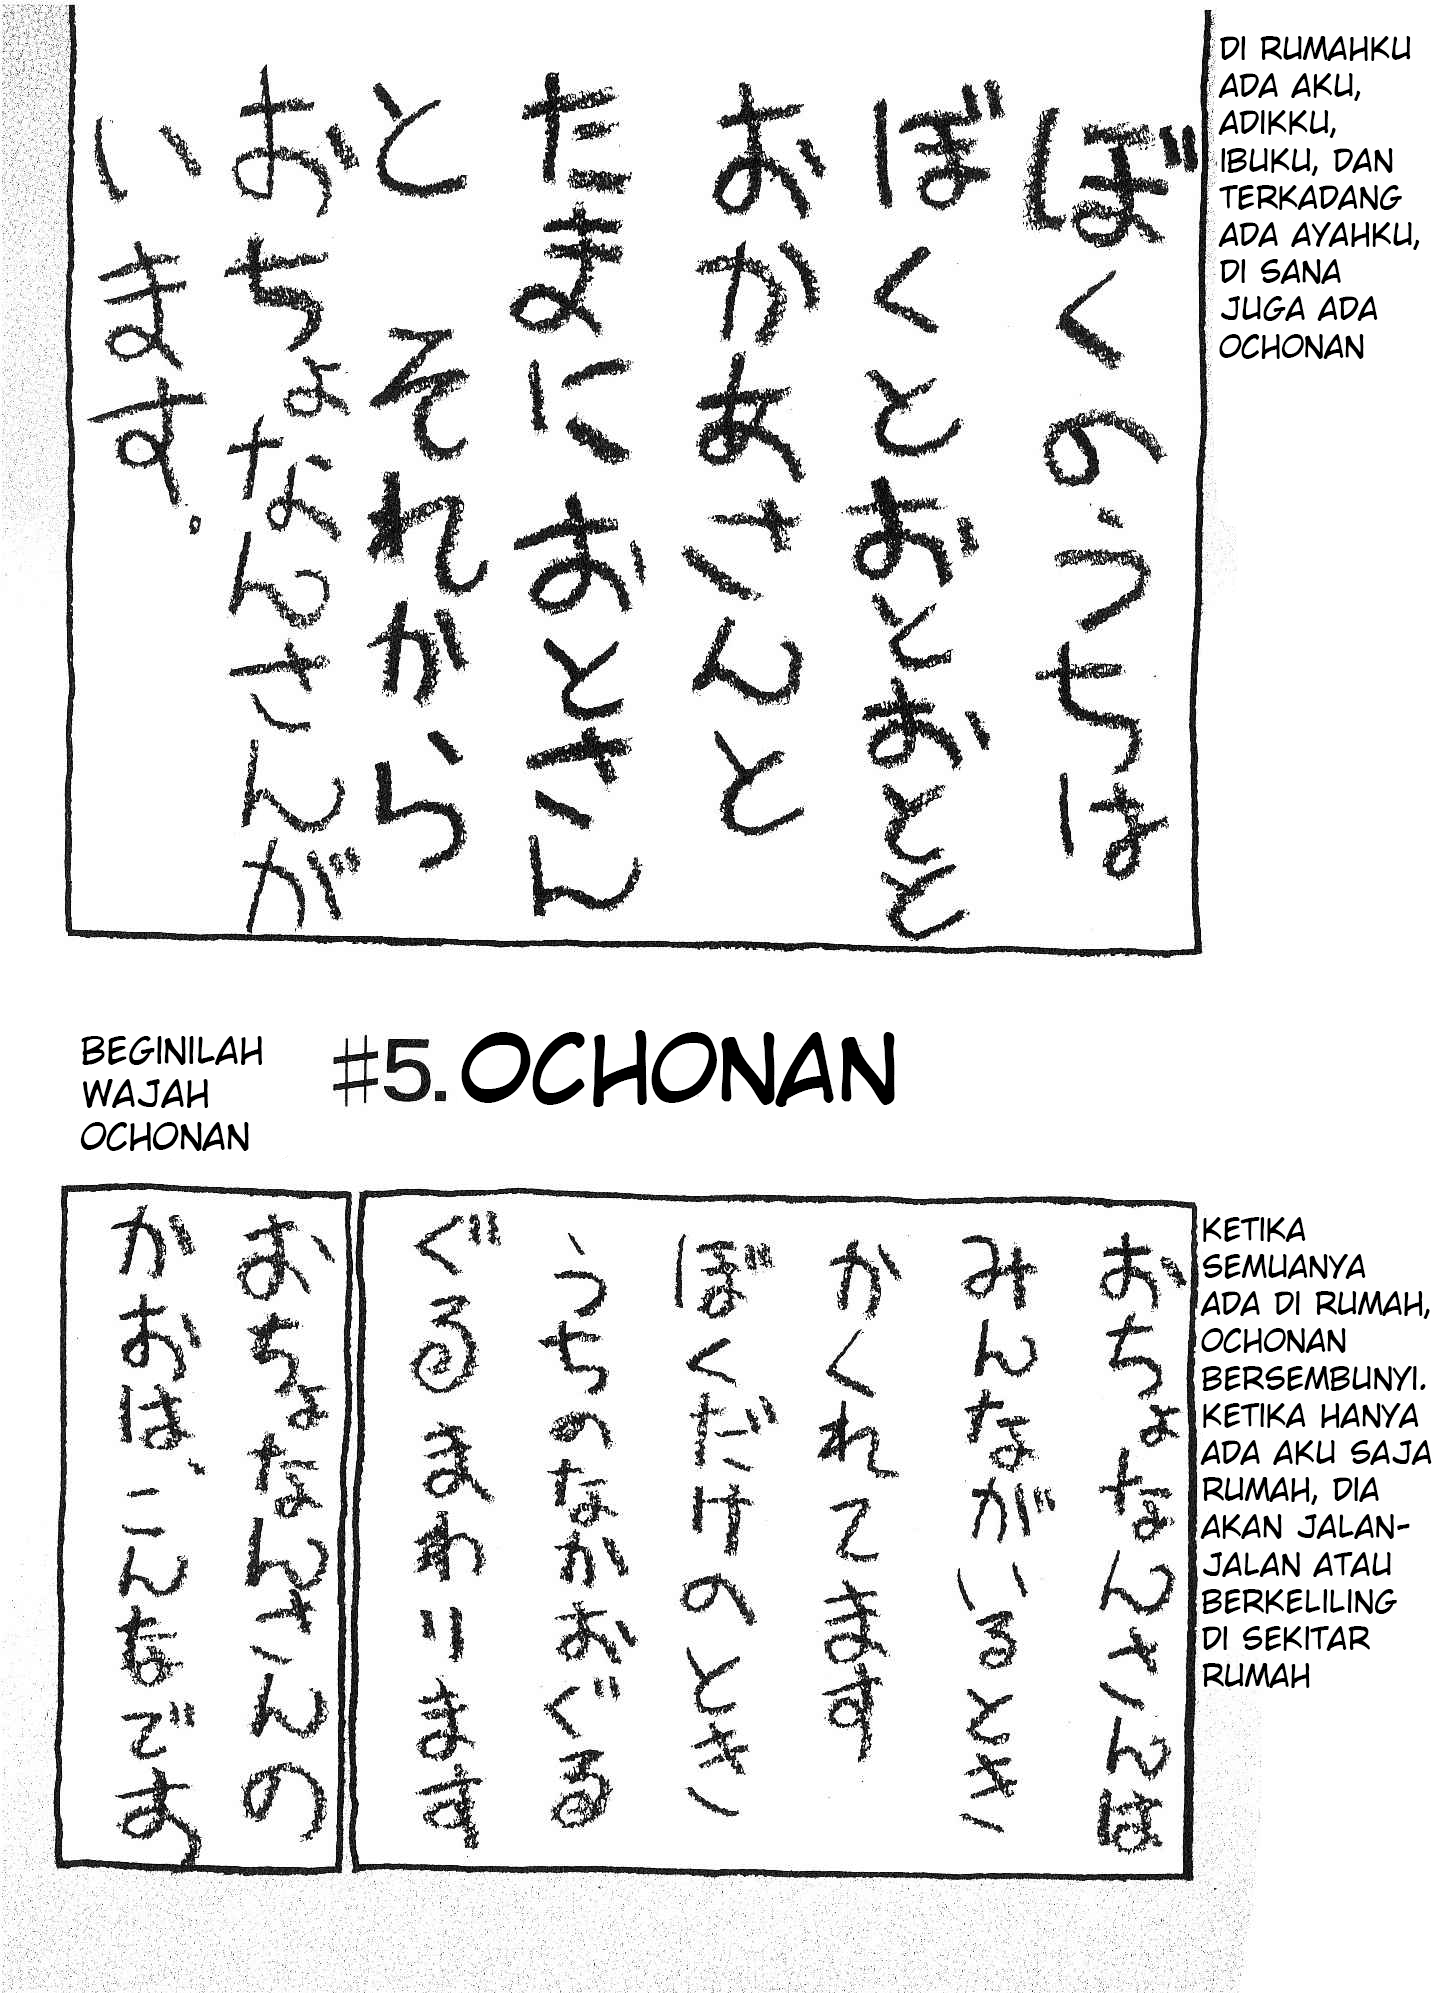 ぼくのうちは
ぼくとおとおとと
おかあさんと
たまにおとさん
と それから
おちょなんさんが
います。
DI RUMAHKU
ADA AKU,
ADIKKU,
IBUKU, DAN
TERKADANG
ADA AYAHKU,
DI SANA
JUGA ADA
OCHONAN
#5. OCHONAN
おちょなんさんは
みんながいるとき
かくれてます
ぼくだけのとき
うちのなかおぐる
ぐるまわります
KETIKA
SEMUANYA
ADA DI RUMAH,
OCHONAN
BERSEMBUNYI.
KETIKA HANYA
ADA AKU SAJA
RUMAH, DIA
AKAN JALAN-
JALAN ATAU
BERKELILING
DI SEKITAR
RUMAH
おちょなんさんの
かおは、こんなです
BEGINILAH
WAJAH
OCHONAN